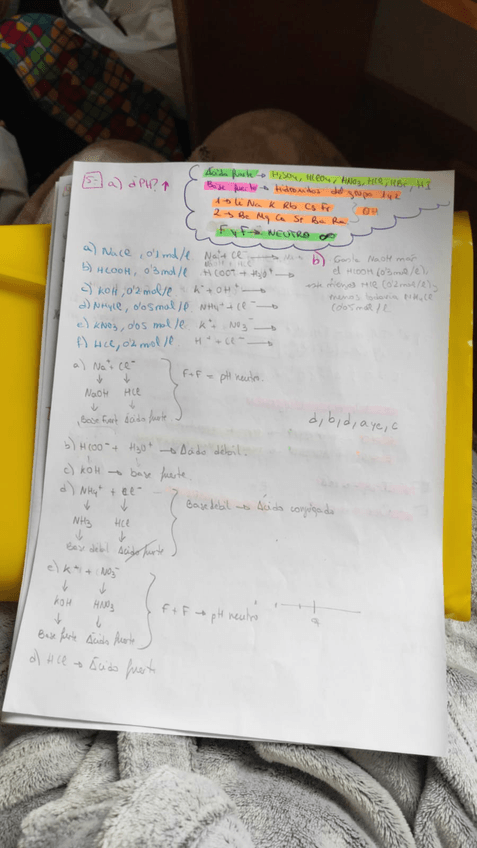 5- a) ¿PH? ↑
Ácido fuerte → H2SO4, HClO4, HNO3, HCl, HBr, HI
Base fuerte → hidróxidos del grupo 1 y 2
1 → Li Na K Rb Cs Fr
2 → Be Mg Ca Sr Ba Ra
OH
F y F → NEUTRO
a) NaCl, 0'1 mol/l. Na+ + Cl-
b) HCOOH, 0'3 mol/l. HCOO- + H3O+ →
c) KOH, 0'2 mol/l K+ + OH- →
d) NH4Cl, 0'05 mol/l NH4+ + Cl- →
e) KNO3, 0'05 mol/l K+ NO3- →
f) HCl, 0'2 mol/l H+ + Cl- →
b) Gasta NaOH más
el HCOOH (0'3 mol/l),
HCl (0'2 mol/l) y
menos NH4Cl
(0'05 mol/l
a) Na+ + Cl-
↓ ↓
NaOH HCl
↓ ↓
Base fuert Ácido fuerte
F + F = pH neutro.
d, b, d, a y e, c
b) HCOO- + H3O+ → Ácido débil.
c) KOH → base fuerte.
d) NH4+ + Cl-
↓ ↓
NH3 HCl
↓ ↓
Base débil Ácido fuerte
Base débil → Ácido conjugado
e) K+ + NO3-
↓ ↓
KOH HNO3
↓ ↓
Base fuerte Ácido fuerte
F + F → pH neutro
d) HCl → Ácido fuerte